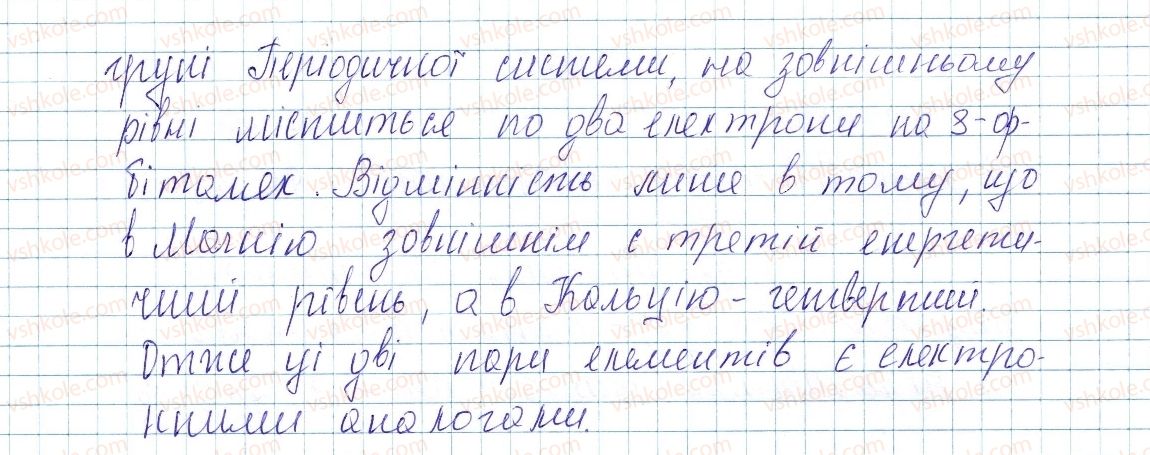 групі Періодичної системи, на зовнішньому
рівні міститься по два електрони на s-ор-
біталях. Відмінність лише в тому, що
в Магнію зовнішнім є третій енергети-
чний рівень, а в Кальцію - четвертий.
Отже ці дві пари елементів є електро-
нними аналогами.